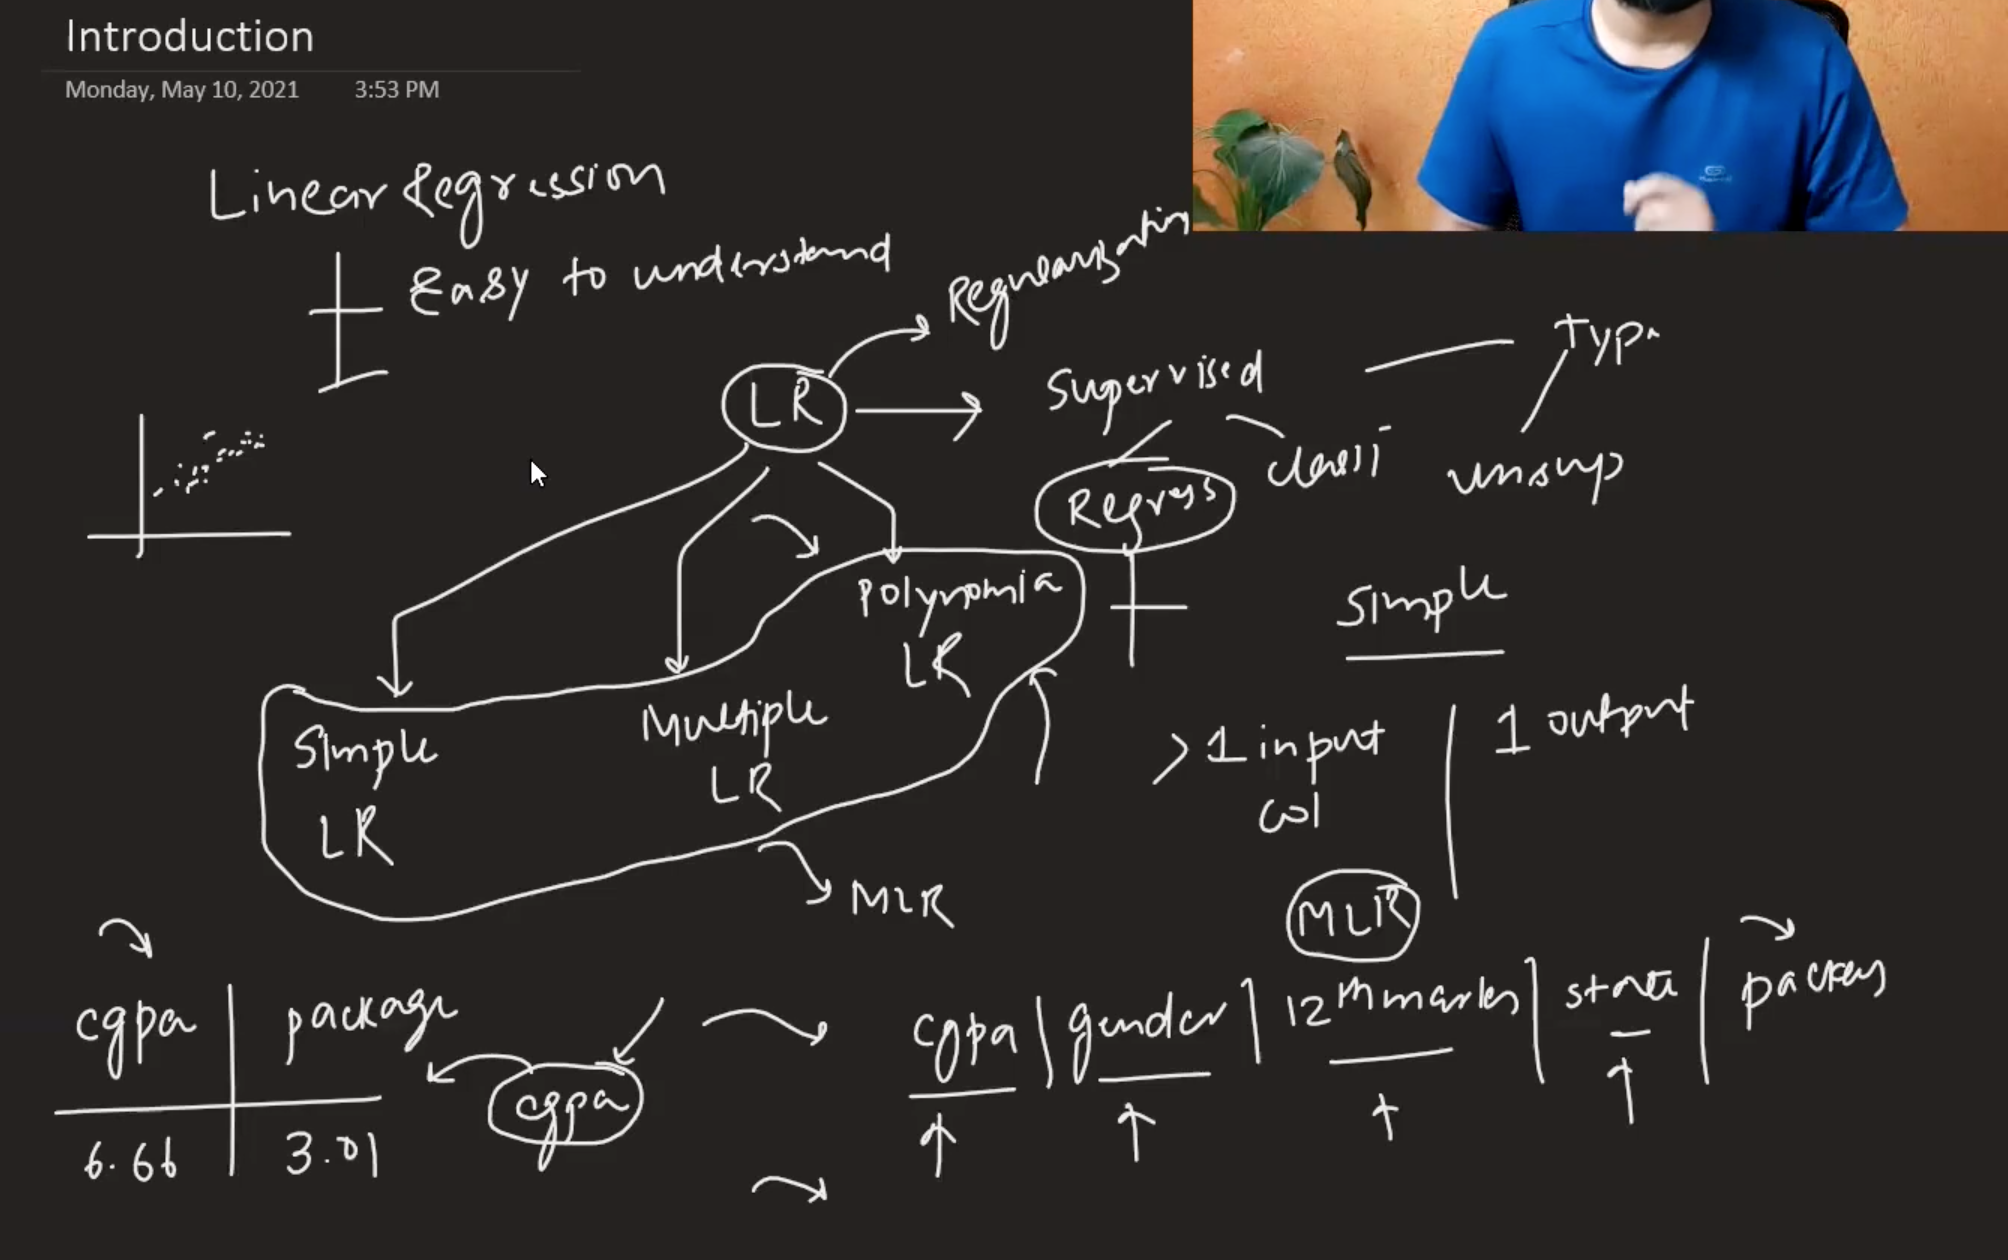 Introduction
Monday, May 10, 2021 3:53 PM
Linear Regression
Easy to understand
Regularization
LR
Supervised
Type
Regress
classi
unsup
Polynomia
LR
Simple
Multiple
LR
Simple
LR
> 1 input
col
1 output
MLR
MLR
cgpa package
6.66 3.01
cgpa
cgpa gender 12th marks state packag